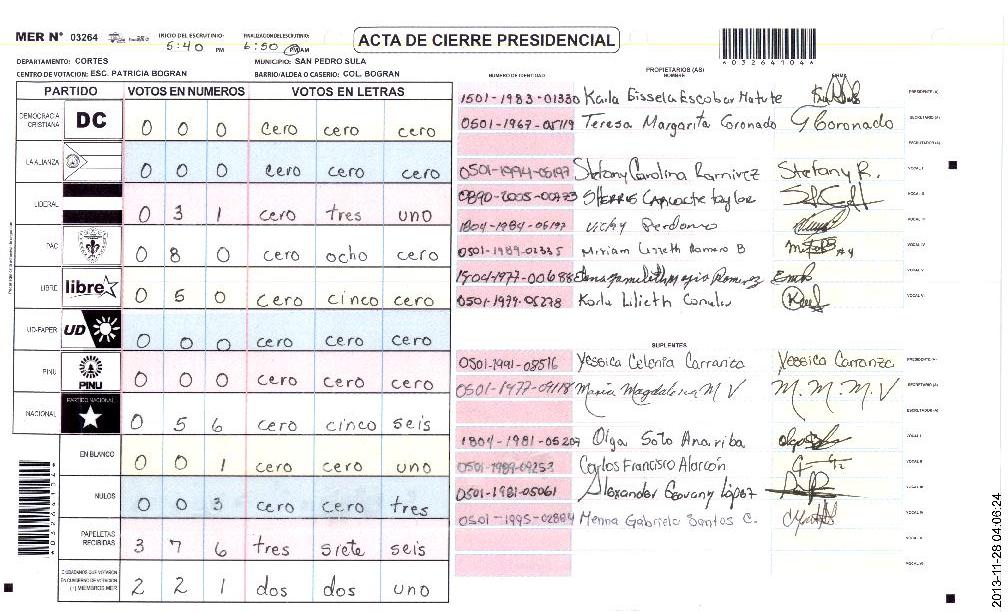 MER N° 03264
INICIO DEL ESCRUTINIO:
5:40 PM
FINALIZACION DEL ESCRUTINIO:
6:50 PM AM
ACTA DE CIERRE PRESIDENCIAL
DEPARTAMENTO: CORTES
MUNICIPIO: SAN PEDRO SULA
CENTRO DE VOTACION: ESC. PATRICIA BOGRAN
BARRIO/ALDEA O CASERIO: COL. BOGRAN
PARTIDO VOTOS EN NUMEROS VOTOS EN LETRAS
DEMOCRACIA CRISTIANA DC 0 0 0 cero cero cero
LA ALIANZA 0 0 0 cero cero cero
LIBERAL 0 3 1 cero tres uno
PAC 0 8 0 cero ocho cero
LIBRE libre 0 5 0 cero cinco cero
UD-FAPER UD 0 0 0 cero cero cero
PINU PINU 0 0 0 cero cero cero
NACIONAL PARTIDO NACIONAL 0 5 6 cero cinco seis
EN BLANCO 0 0 1 cero cero uno
NULOS 0 0 3 cero cero tres
PAPELETAS RECIBIDAS 3 7 6 tres siete seis
CIUDADANOS QUE VOTARON
EN CUADERNO DE VOTACION
(+) MIEMBROS MER 2 2 1 dos dos uno
PROPIETARIOS (AS)
NUMERO DE IDENTIDAD NOMBRE FIRMA
1501-1983-01330 Karla Gissela Escobar Matute PRESIDENTE (A)
0501-1967-05119 Teresa Margarita Coronado G Coronado SECRETARIO (A)
ESCRUTADOR (A)
0501-1994-05197 Stefany Carolina Ramirez Stefany R. VOCAL I
0890-2005-00473 VOCAL II
1804-1984-05197 Vicky Perdomo VOCAL III
0501-1989-01335 Miriam Lizeth Romero B VOCAL IV
VOCAL V
0501-1979-05278 Karla Lilieth VOCAL VI
SUPLENTES
0501-1991-08516 Yessica Celenia Carranza Yessica Carranza PRESIDENTE (A)
0501-1977-09118 Maria Magdalena M V M. M. M. V SECRETARIO (A)
ESCRUTADOR (A)
1804-1981-05207 Olga Soto Anariba VOCAL I
0501-1989-09253 Carlos Francisco Alarcón VOCAL II
0501-1981-05061 Alexander Geovany López VOCAL III
0501-1995-02884 Menna Gabriela Santos C. VOCAL IV
VOCAL V
VOCAL VI
2013-11-28 04:06:24